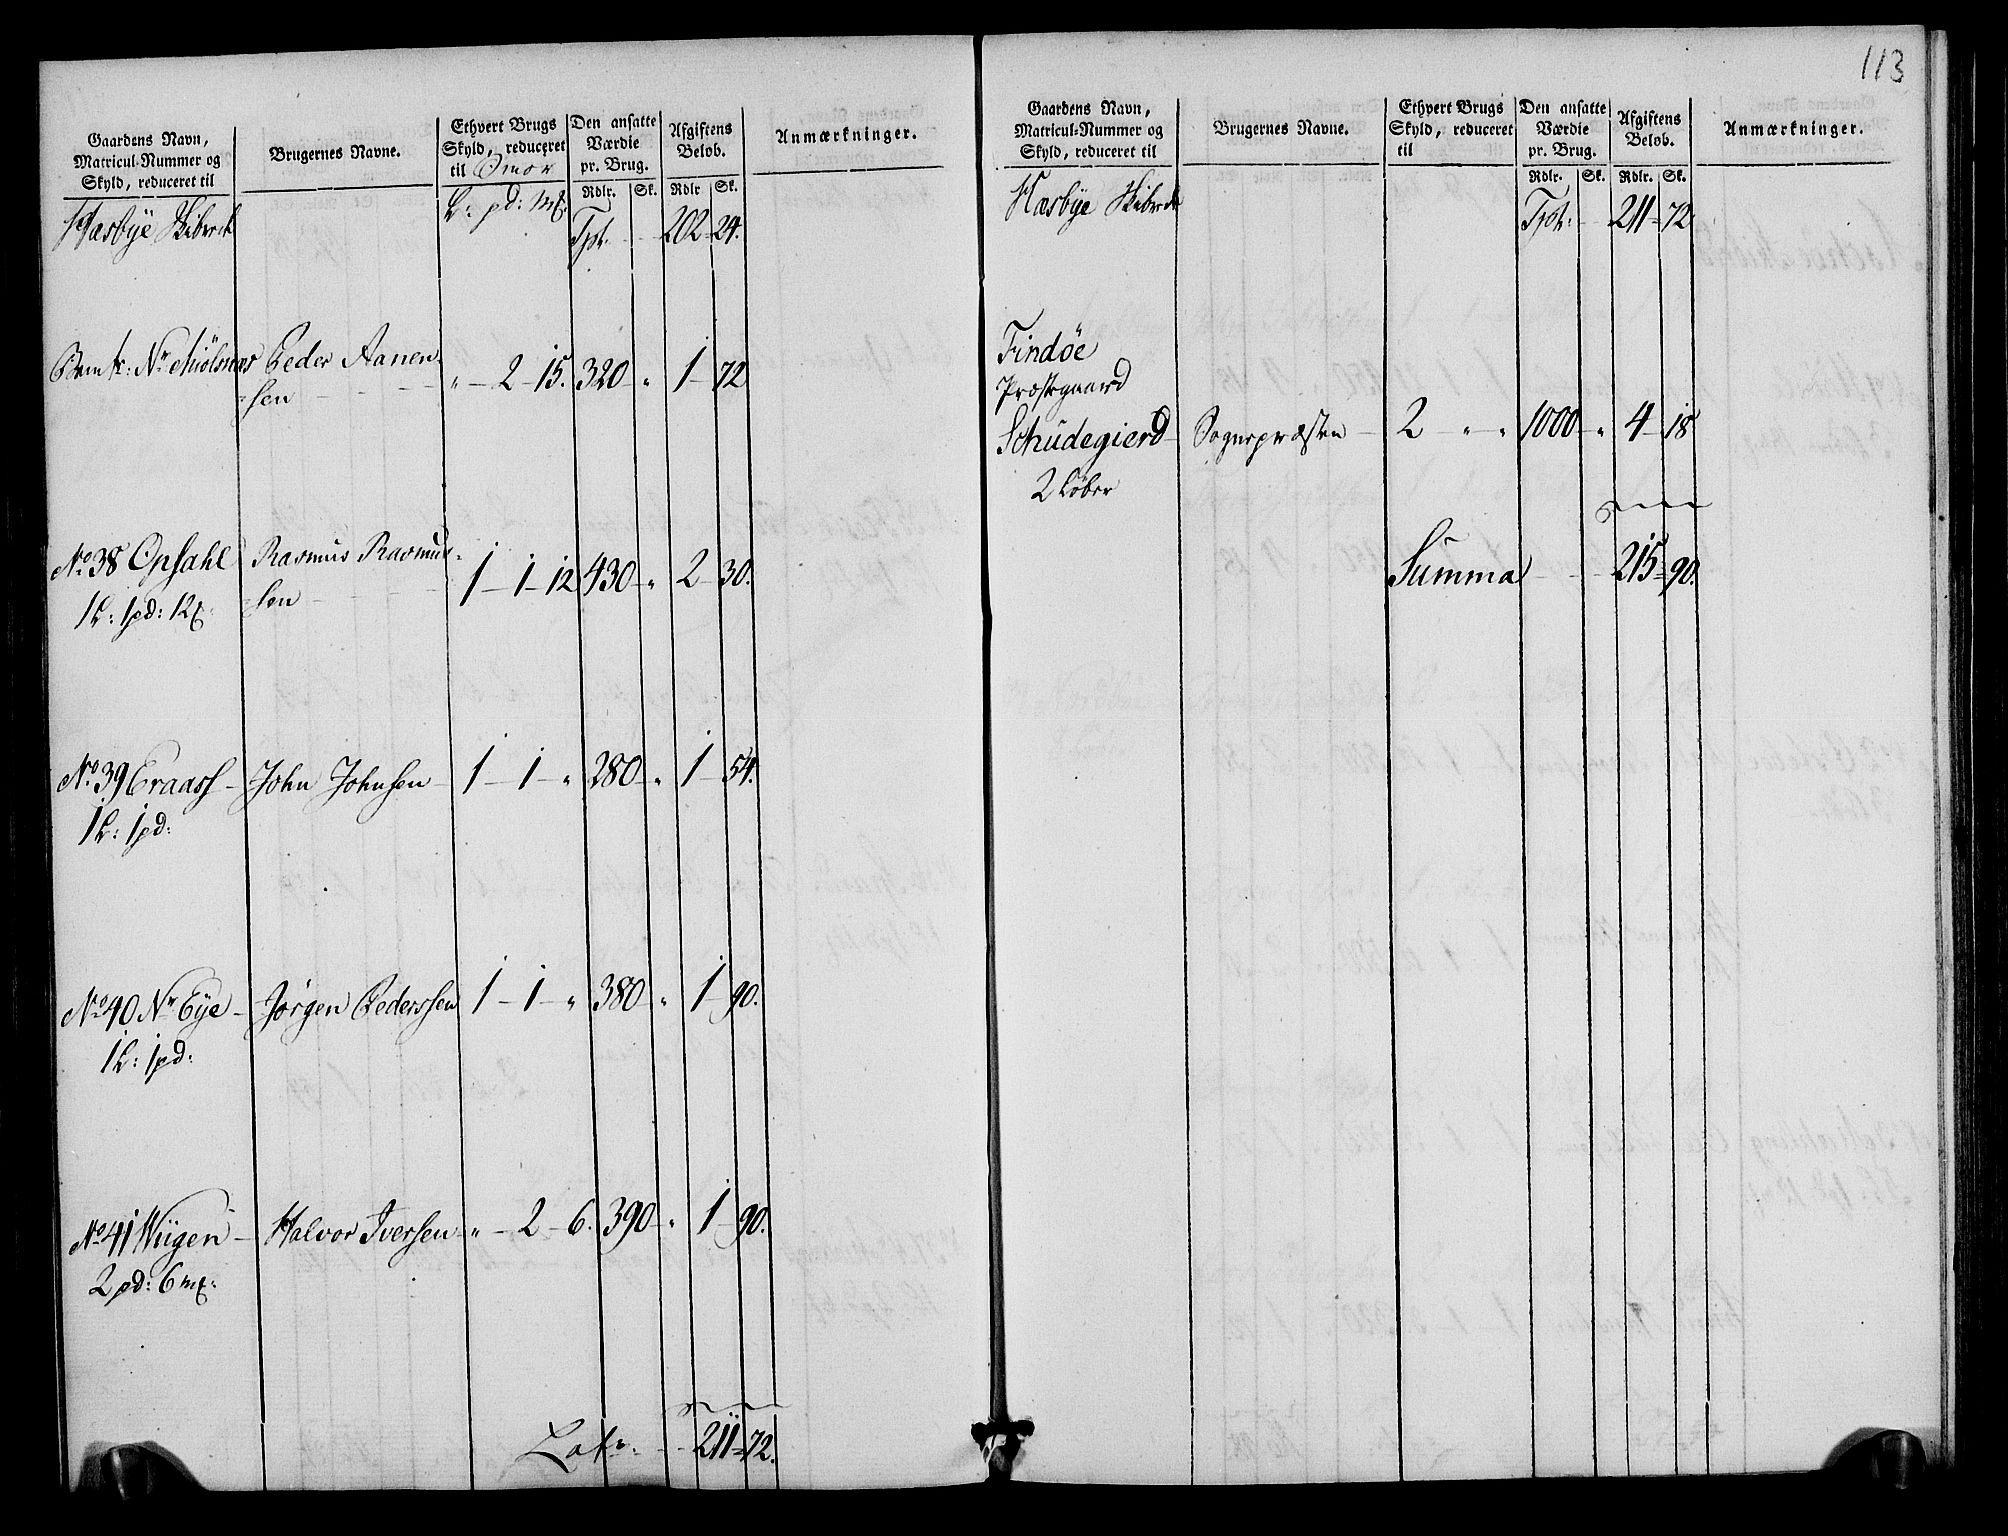 Gaardens Navn,
Matricul-Nummer og
Skyld, reduceret til
Brugernes Navne.
Ethvert Brugs
Skyld, reduceret
til Smør
Den ansatte
Værdie
pr. Brug.
Rdlr. Sk.
Afgiftens
Beløb.
Rdlr Sk.
Anmærkninger.
Hæsbye Skibrede L: pd: Mk: Tpt. 202 - 24.
N: Miölsnæs Peder Aanen- " - 2 - 15. 320 " 1 - 72
=sen
No 38 Opsahl Rasmus Rasmus- 1 - 1 - 12 430 - " 2 - 30.
1 L: 1 pd: 12
sen
No 39 Eraass - John Johnsen - 1 - 1 - " 280 - " 1 - 54.
1 L: 1 pd:
No 40 Nr Eye - Jørgen Pederssen 1 - 1 - " 380 " 1 - 90.
1 L: 1 pd:
No 41 Wiigen - Halvor Iversen - " - 2 - 6. 390 - " 1 - 90.
2 pd: 6 mk:
Latr: 211 = 72.
113
Gaardens Navn,
Matricul-Nummer og
Skyld, reduceret til
Brugernes Navne.
Ethvert Brugs
Skyld, reduceret
til
Den ansatte
Værdie
pr. Brug.
Rdlr. Sk.
Afgiftens
Beløb.
Rdlr. Sk.
Anmærkninger.
Hæsbye Skibrede Tpt: 211 = 72.
Findöe
Præstegaard
Schudegierd - Sognepræsten - 2 " - " 1000 - " 4 - 18
2 Løber
Summa - - 215 = 90.